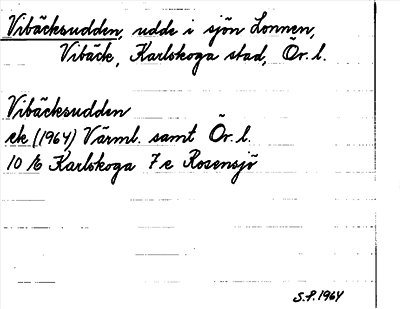 Vibäcksudden, udde i sjön Lonnen,
Vibäck, Karlskoga stad, Ör. l.
Vibäcksudden
ek (1964) Värml. samt Ör. l.
10 16 Karlskoga 7 e Rosensjö
S.P. 1964